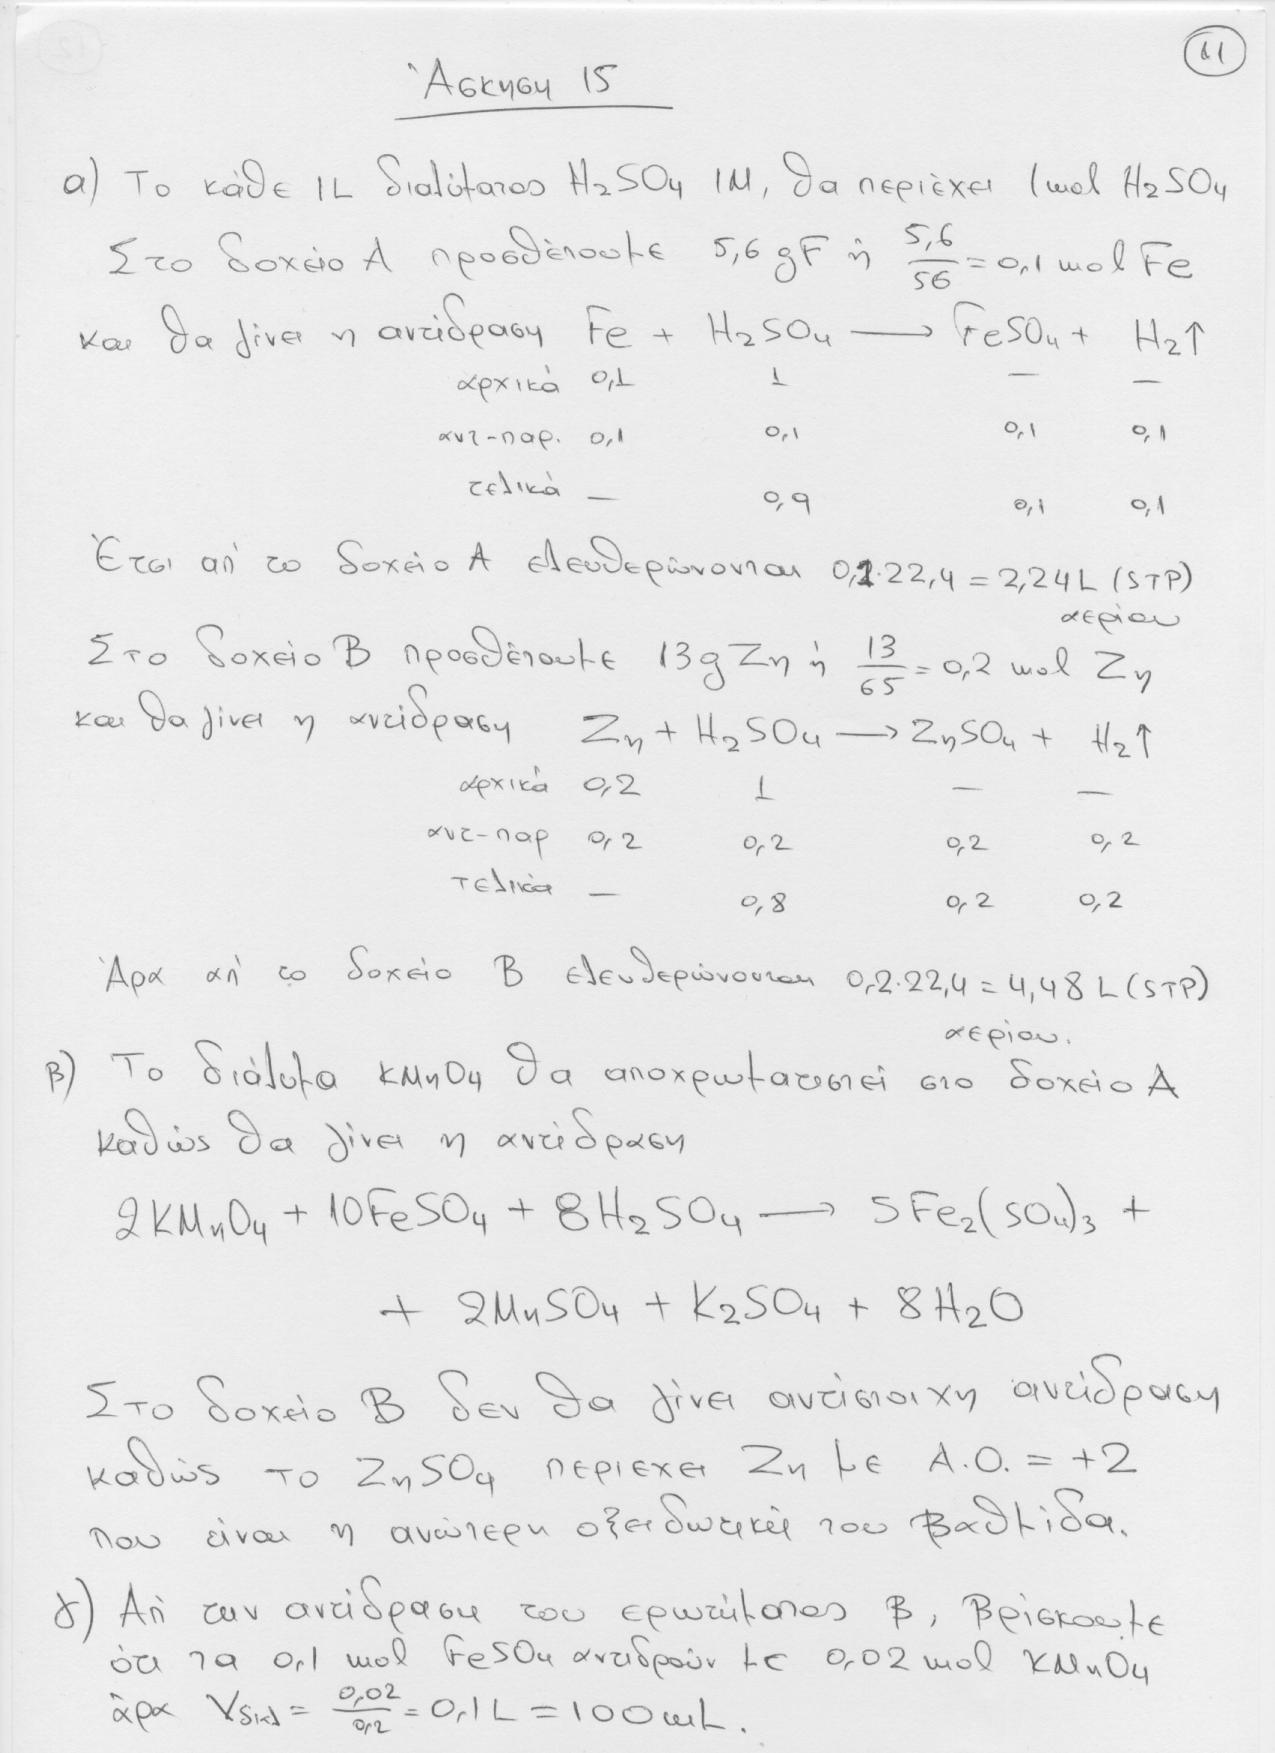 11
Άσκηση 15
α) Το κάθε 1L διαλύματος H₂SO₄ 1M, θα περιέχει 1mol H₂SO₄
Στο δοχείο Α προσθέτουμε 5,6 gF ή 5,6/56 = 0,1 mol Fe
και θα γίνει η αντίδραση Fe + H₂SO₄ → FeSO₄ + H₂↑
αρχικά 0,1 1 — —
αντ-παρ. 0,1 0,1 0,1 0,1
τελικά — 0,9 0,1 0,1
Έτσι απ' το δοχείο Α ελευθερώνονται 0,1·22,4 = 2,24L (STP)
αερίου
Στο δοχείο Β προσθέτουμε 13g Zn ή 13/65 = 0,2 mol Zn
και θα γίνει η αντίδραση Zn + H₂SO₄ → ZnSO₄ + H₂↑
αρχικά 0,2 1 — —
αντ-παρ 0,2 0,2 0,2 0,2
τελικά — 0,8 0,2 0,2
Άρα απ' το δοχείο Β ελευθερώνονται 0,2·22,4 = 4,48 L (STP)
αερίου.
β) Το διάλυμα KMnO₄ θα αποχρωματιστεί στο δοχείο Α
καθώς θα γίνει η αντίδραση
2KMnO₄ + 10FeSO₄ + 8H₂SO₄ → 5Fe₂(SO₄)₃ +
+ 2MnSO₄ + K₂SO₄ + 8H₂O
Στο δοχείο Β δεν θα γίνει αντίστοιχη αντίδραση
καθώς το ZnSO₄ περιεχει Zn με Α.Ο. = +2
που είναι η ανώτερη οξειδωτική του βαθμίδα.
γ) Απ' την αντίδραση του ερωτήματος Β, βρίσκουμε
ότι τα 0,1 mol FeSO₄ αντιδρούν με 0,02 mol KMnO₄
άρα Vδιαλ = 0,02/0,2 = 0,1L = 100mL.